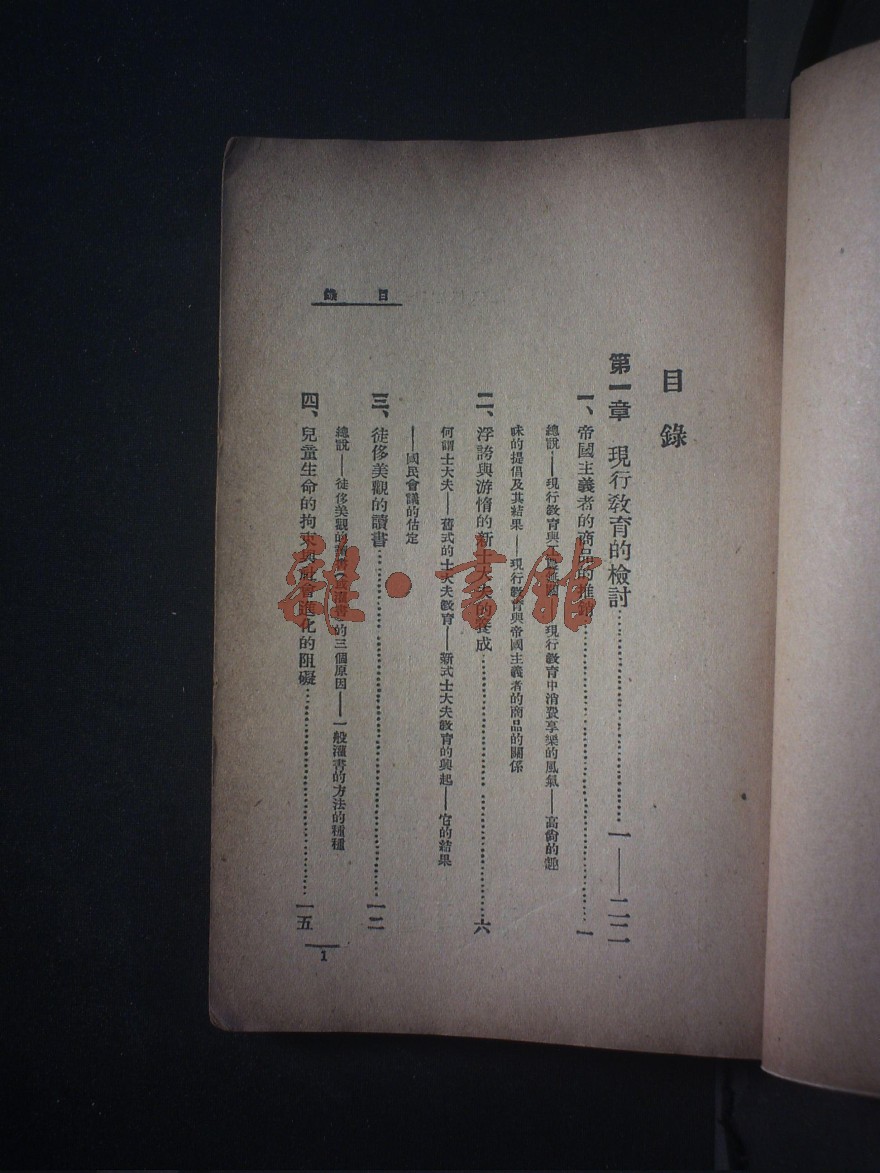 目錄
第一章 現行敎育的檢討……一——二二
一、帝國主義者的商品的推銷……一
總說——現行敎育與 現行敎育中消費享樂的風氣——高尙的趣
味的提倡及其結果——現行敎育與帝國主義者的商品的關係
二、浮誇與游惰的新士大夫的養成……六
何謂士大夫——舊式的士大夫敎育——新式士大夫敎育的興起——官的結果
——國民會議的估定
三、徒侈美觀的讀書……一二
總說——徒侈美觀的讀書 的三個原因——一般灌書的方法的種種
四、兒童生命的拘束與社會進化的阻礙……一五
目錄
1
雅·書館